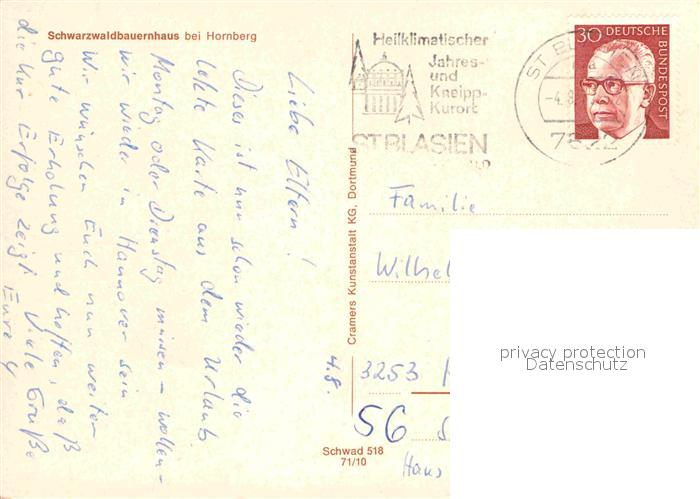 Schwarzwaldbauernhaus bei Hornberg
Liebe Eltern!
Dieses ist nun schon wieder die
letzte Karte aus dem Urlaub
Montag oder Dienstag müssen – wollen –
wir wieder in Hannover sein
Wir wünschen Euch nun weiter
gute Erholung und hoffen, daß
die Kur Erfolge zeigt. Viele Grüße
Eure 4
4.8.
Cramers Kunstanstalt KG, Dortmund
Schwad 518
71/10
Heilklimatischer
Jahres-
und
Kneipp-
Kurort
ST BLASIEN
ST BL
-4.8
7822
30 DEUTSCHE
BUNDESPOST
Familie
Wilhel
3253
56
Haus
privacy protection
Datenschutz